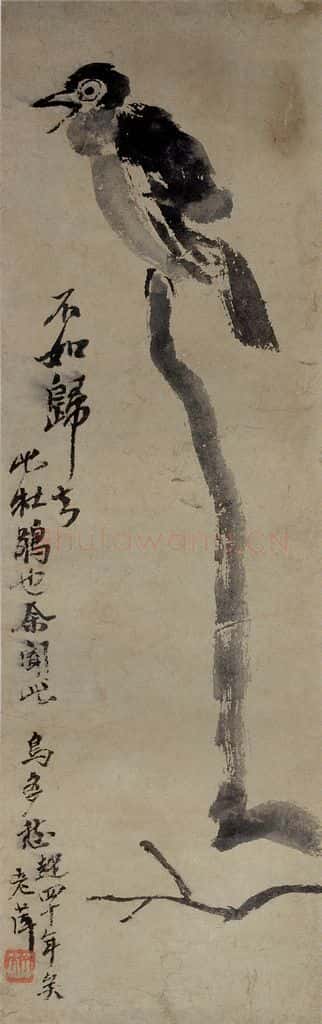 不如歸去
此杜鵑也余聞此
鳥多
四十年矣
老萍
Shufawang.CN